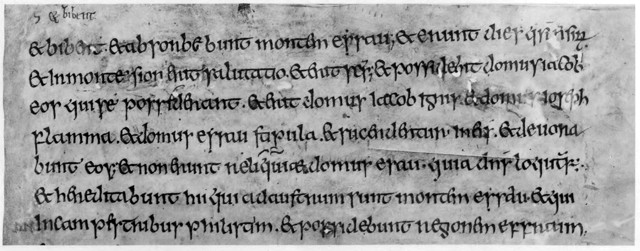 & bibent
& bibent. & absorbebunt montem esau; & erunt
& in monte sion erit saluatio. & erit scs; & possidebit domus iacob
eos qui se possederant. & erit domus iacob ignis. & domus ioseph
flamma. & domus esau stipula. & succendentur in eis. & deuora
bunt eos; & non erunt reliquiae domus esau. quia dns loquitur.
& hereditabunt hii qui ad austrum sunt montem esau. & qui
in campestribus philistim. & possidebunt regionem effraim,